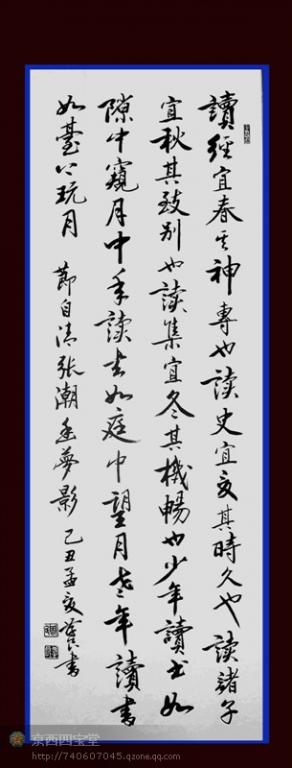 讀經宜春其神專也读史宜夏其時久也读諸子
宜秋其致别也读集宜冬其機暢也少年讀书如
隙中窺月中年读书如庭中望月老年讀書
如臺上玩月 節自清張潮幽夢影 己丑孟夏 书
京西四宝堂
http://740607045.qzone.qq.com